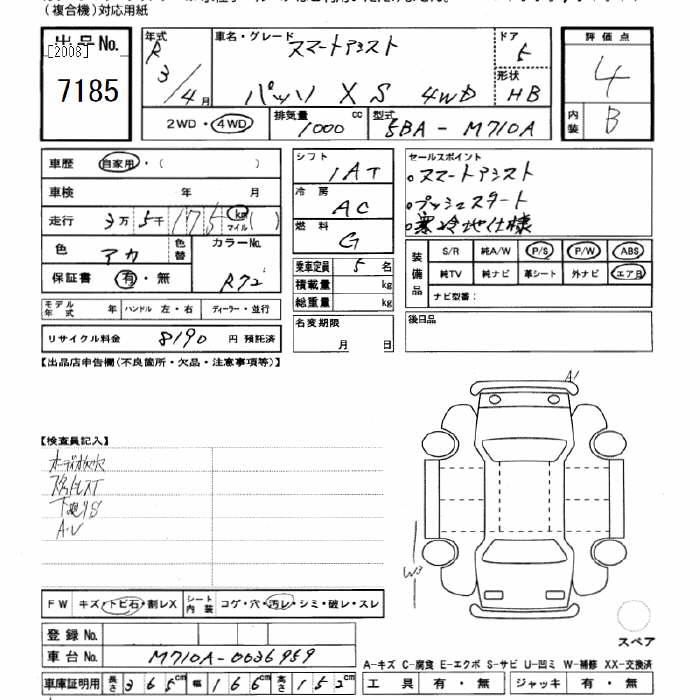 （複合機）対応用紙
出品No.
[2008]
7185
年式
R
3/4月
車名・グレード
スマートアシスト
パッソ XS 4WD
ドア
5
形状
HB
2WD・4WD
排気量
1000 cc
型式
5BA - M710A
評価点
4
内装
B
車歴 自家用・( )
車検 年 月
走行 3万5千175 km マイル ( )
色 アカ
色替
カラーNo.
R72
保証書 有・無
モデル年式 年 ハンドル 左・右 ディーラー・並行
リサイクル料金 8190 円 預託済
シフト
IAT
冷房
AC
燃料
G
乗車定員 5 名
積載量 kg
総重量 kg
名変期限
月 日
セールスポイント
。スマートアシスト
。プッシュスタート
。寒冷地仕様
装備品
S/R 純A/W P/S P/W ABS
純TV 純ナビ 革シート 外ナビ エアB
ナビ型番：
後日品
【出品店申告欄（不良箇所・欠品・注意事項等）】
【検査員記入】
下廻りS
A・U
A1
W3
FW キズ・トビ石・割レX
シート内装 コゲ・穴・汚レ・シミ・破レ・スレ
登録No.
車台No. M710A-0036959
車庫証明用 長さ 365cm 幅 166cm 高さ 152cm
スペア
A-キズ C-腐食 E-エクボ S-サビ U-凹ミ W-補修 XX-交換済
工具 有・無 ジャッキ 有・無